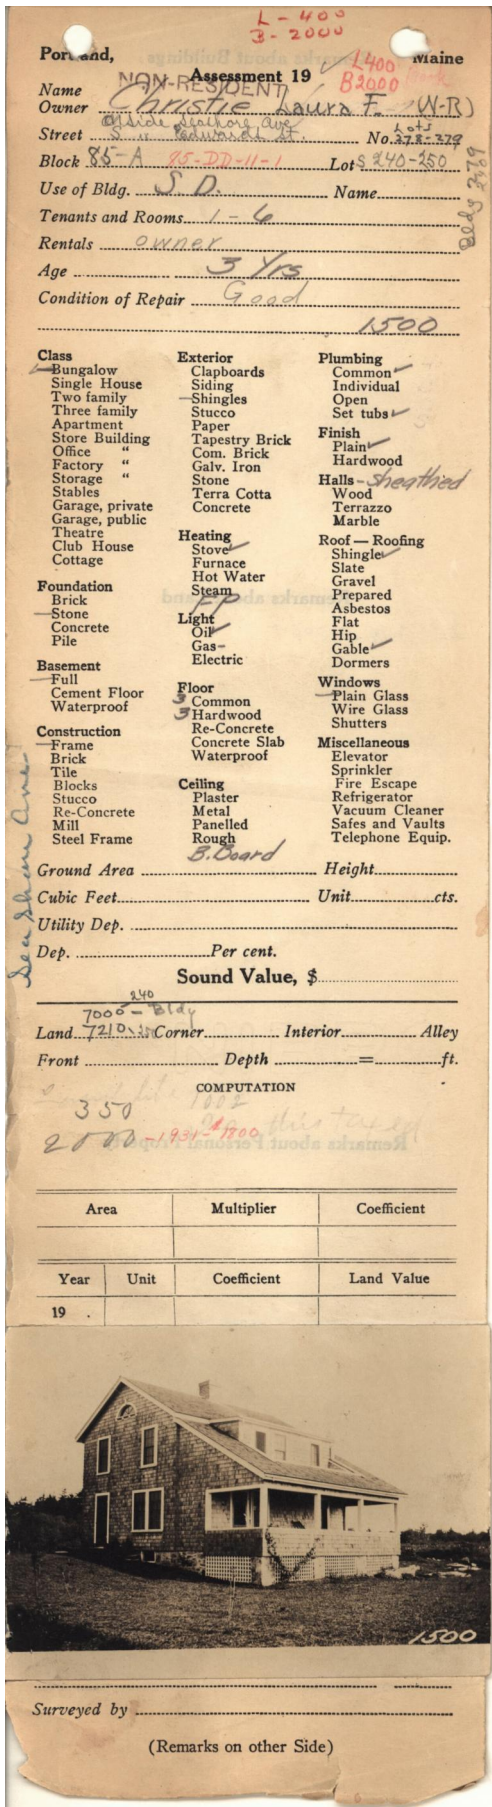 L - 400
B - 2000
Portland, Maine
Assessment 19
L400
B2000
NON-RESIDENT
Name
Owner Christie Laura F. (W-R)
Offside Seashore Ave
Street S. W. Edwards St. No. Lots 378-379
Block 85-A 85-DD-11-1 Lots 240-250
Bldg 379
Use of Bldg. S D. Name
Tenants and Rooms 1 - 6
Rentals owner
Age 3 Yrs
Condition of Repair Good
1500
Class
Bungalow
Single House
Two family
Three family
Apartment
Store Building
Office "
Factory "
Storage "
Stables
Garage, private
Garage, public
Theatre
Club House
Cottage
Foundation
Brick
Stone
Concrete
Pile
Basement
Full
Cement Floor
Waterproof
Construction
Frame
Brick
Tile
Blocks
Stucco
Re-Concrete
Mill
Steel Frame
Exterior
Clapboards
Siding
Shingles
Stucco
Paper
Tapestry Brick
Com. Brick
Galv. Iron
Stone
Terra Cotta
Concrete
Heating
Stove
Furnace
Hot Water
Steam
FP
Light
Oil
Gas
Electric
Floor
3 Common
3 Hardwood
Re-Concrete
Concrete Slab
Waterproof
Ceiling
Plaster
Metal
Panelled
Rough
B. Board
Plumbing
Common
Individual
Open
Set tubs
Finish
Plain
Hardwood
Halls - sheathed
Wood
Terrazzo
Marble
Roof — Roofing
Shingle
Slate
Gravel
Prepared
Asbestos
Flat
Hip
Gable
Dormers
Windows
Plain Glass
Wire Glass
Shutters
Miscellaneous
Elevator
Sprinkler
Fire Escape
Refrigerator
Vacuum Cleaner
Safes and Vaults
Telephone Equip.
Sea Shore Ave.
Ground Area Height
Cubic Feet Unit cts.
Utility Dep.
Dep. Per cent.
Sound Value, $
240
7000 - Bldg
Land 7210 Corner Interior Alley
Front Depth = ft.
COMPUTATION
350
2000 - 1931 - $1800
Area Multiplier Coefficient
Year Unit Coefficient Land Value
19 .
1500
Surveyed by
(Remarks on other Side)